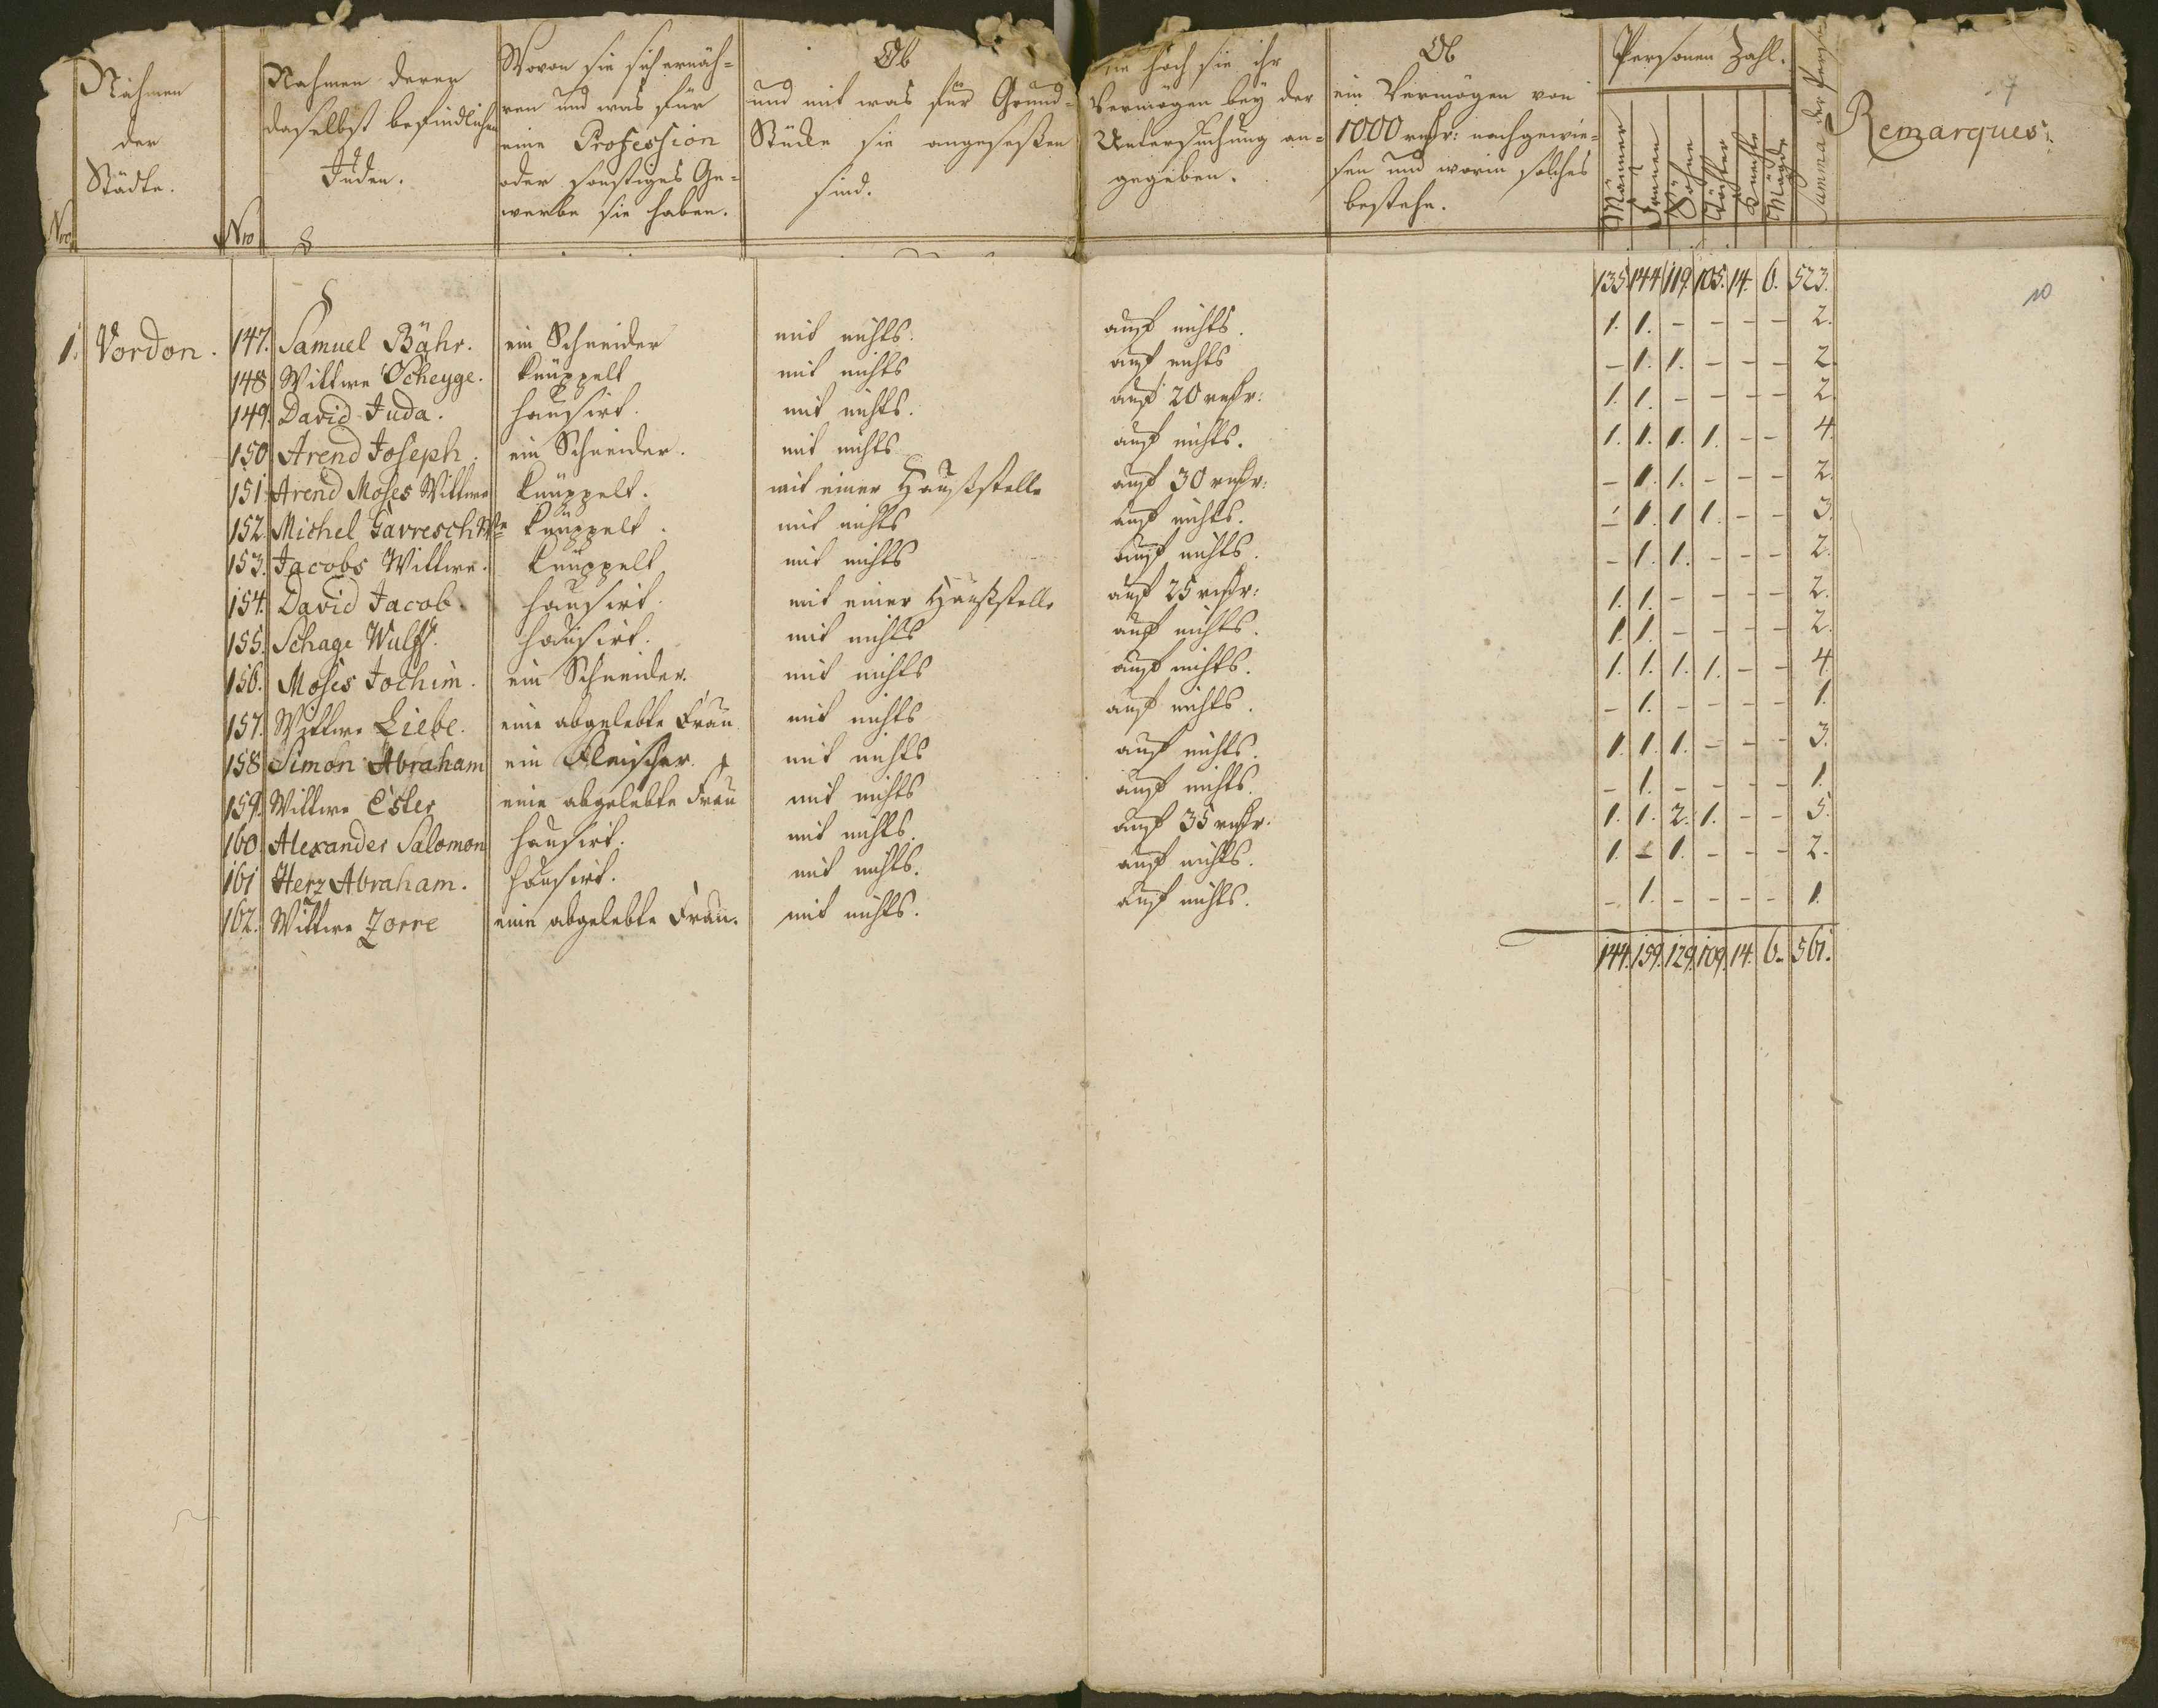 Nahmen
der
Städte.
Nro
Nro
Nahmen derer
daselbst befindlichen
Juden.
Wovon sie sich ernäh-
ren und was für
eine Profession
oder sonstiges Ge-
werbe sie haben.
Ob
und mit was für Grund-
Stücke sie angeseßen
sind.
wie hoch sie ihr
Vermögen bey der
Untersuchung an-
gegeben.
Ob
ein Vermögen von
1000 rthlr: nachgewie-
sen und worin solches
bestehe.
Personen Zahl.
Männer
Frauen
Söhne
Töchter
Knechte
Mägde
Summa der Persohn
Remarques.
7
10
135. 144. 119. 105. 14. 6. 523.
1. Vordon. 147. Samuel Bähr. ein Schneider mit nichts. auf nichts. 1. 1. - - - - 2.
148 Wittwe Scheyge. knüppelt mit nichts auf nichts - 1. 1. - - - 2.
149. David Juda. hausirt. mit nichts. auf 20 rthlr: 1. 1. - - - - 2.
150 Arend Joseph. ein Schneider. mit nichts auf nichts. 1. 1. 1. 1. - - 4.
151 Arend Moses Wittwe knüppelt. mit einer Haußstelle auf 30 rthlr: - 1. 1. - - - 2.
152. Michel Gavresch Wwe knüppelt. mit nichts auf nichts. - 1. 1 1. - - 3.
153. Jacobs Wittwe. knüppelt mit nichts auf nichts. - 1. 1. - - - 2.
154. David Jacob. hausirt. mit einer Haußstelle auf 25 rthlr: 1. 1. - - - - 2.
155. Schage Wulff. hausirt. mit nichts auf nichts. 1. 1. - - - - 2.
156. Moses Jochim. ein Schneider. mit nichts auf nichts. 1. 1. 1. 1. - - 4.
157. Wittwe Liebe. eine abgelebte Frau mit nichts auf nichts. - 1. - - - - 1.
158 Simon Abraham ein Fleischer. mit nichts auf nichts. 1. 1. 1. - - - 3.
159. Wittwe Ester eine abgelebte Frau mit nichts auf nichts. - 1. - - - - 1.
160. Alexander Salomon hausirt. mit nichts. auf 35 rthlr. 1. 1. 2. 1. - - 5.
161 Herz Abraham. hausirt. mit nichts. auf nichts. 1. - 1. - - - 2.
162. Wittwe Zorre eine abgelebte Frau. mit nichts. auf nichts. - 1. - - - - 1.
144. 159. 129. 109. 14. 6. 561.